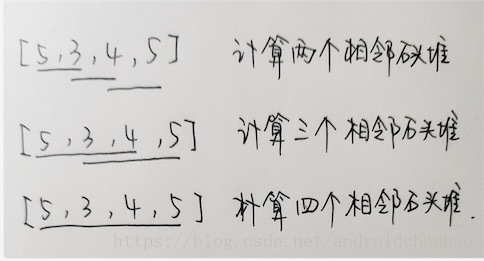 [5,3,4,5] 计算两个相邻石头堆
[5,3,4,5] 计算三个相邻石头堆
[5,3,4,5] 计算四个相邻石头堆.